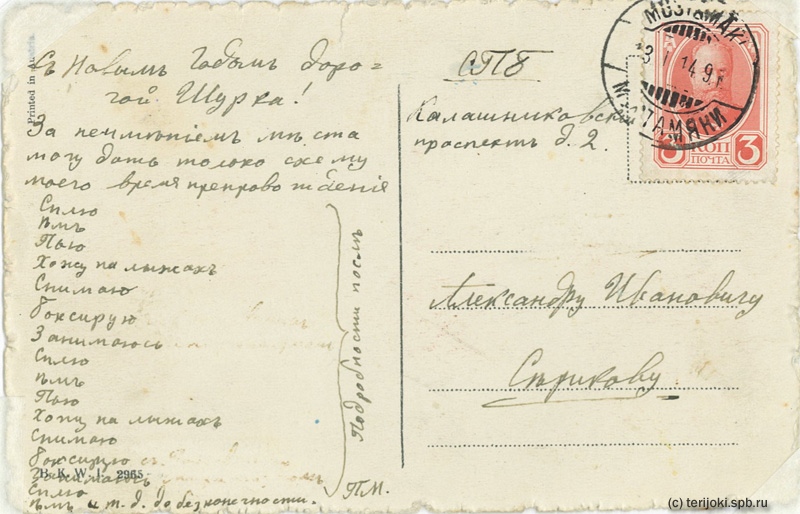 Printed in Austria
Съ Новымъ Годомъ доро-
гой Шурка!
За неимѣніемъ мѣста
могу дать только схему
моего время препровожденія
Сплю
ѣмъ
Пою
Хожу на лыжахъ
Снимаю
боксирую
Занимаюсь
Сплю
ѣмъ
Пою
Хожу на лыжахъ
Снимаю
боксирую
Занимаюсь
Сплю
ѣмъ и т. д. до безконечности.
Подробности послѣ
П.М.
B. K. W. I. 2965
СПб
Калашниковскій
проспектъ д. 2.
Александру Ивановичу
Стрикову
MUSTAMÄKI
14
МУСТАМЯКИ
3 КОП 3
ПОЧТА
(c) terijoki.spb.ru